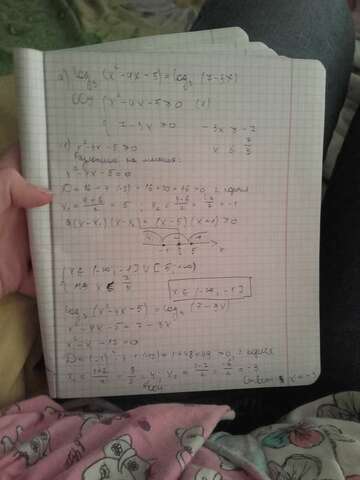 2) log₃ (x² - 4x - 5) = log₃ (7 - 3x)
ОДЗ { x² - 4x - 5 > 0 (1)
7 - 3x > 0 - 3x > -7
1) x² - 4x - 5 > 0 x < 7/3
x² - 4x - 5 = 0
D = 16 - 4 · (-5) = 16 + 20 = 36 > 0, 2 корня
x₁ = (4+6)/2 = 5 x₂ = (4-6)/2 = -2/2 = -1
(x - x₁)(x - x₂) = (x - 5)(x + 1) > 0
-1 5 x
{ x ∈ (-∞, -1) ∪ (5, +∞)
x ∈ (-∞, -1)
log₃ (x² - 4x - 5) = log₃ (7 - 3x)
x² - 4x - 5 = 7 - 3x
x² - x - 12 = 0
D = (-1)² - 4 · (-12) = 1 + 48 = 49 > 0, 2 корня
x₁ = (1+7)/2 = 8/2 = 4, x₂ = (1-7)/2 = -6/2 = -3
Ответ: x = -3